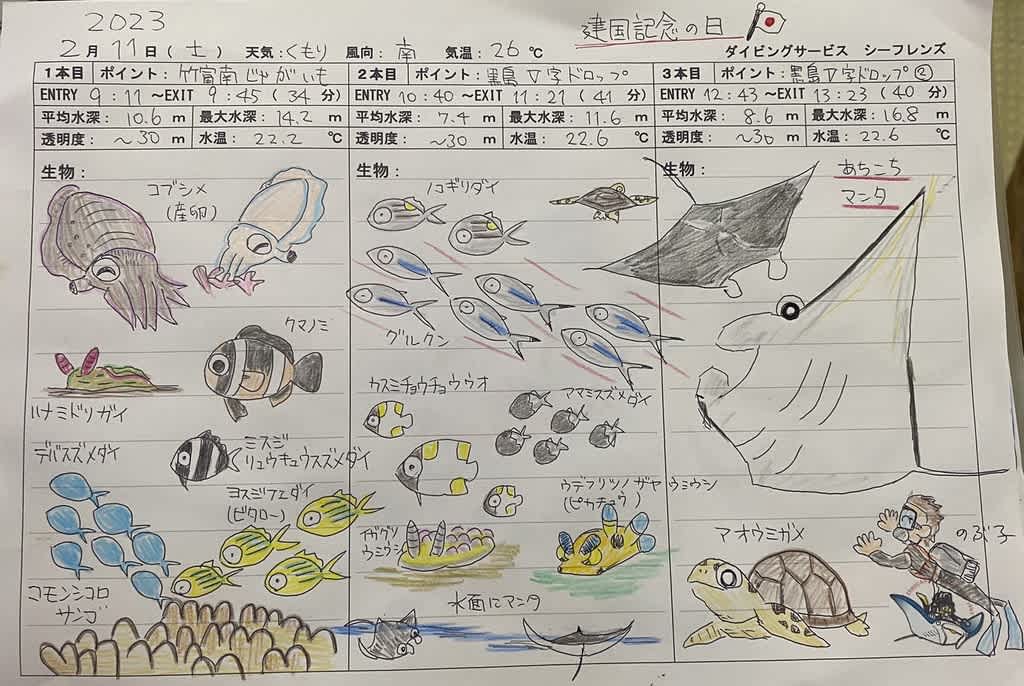 2023
建国記念の日
2月11日(土) 天気:くもり 風向:南 気温:26℃
ダイビングサービス シーフレンズ
1本目 ポイント:竹富南じゃがいも
ENTRY 9:11~EXIT 9:45(34分)
平均水深:10.6m 最大水深:14.2m
透明度:~30m 水温:22.2℃
生物:
コブシメ
(産卵)
クマノミ
ハナミドリガイ
デバスズメダイ
ミスジ
リュウキュウスズメダイ
ヨスジフエダイ
(ビタロー)
コモンシコロ
サンゴ
2本目 ポイント:黒島V字ドロップ
ENTRY 10:40~EXIT 11:21(41分)
平均水深:7.4m 最大水深:11.6m
透明度:~30m 水温:22.6℃
生物:
ノコギリダイ
グルクン
カスミチョウチョウウオ
アマミスズメダイ
ウデフリツノザヤウミウシ
(ピカチュウ)
イガグリ
ウミウシ
水面にマンタ
3本目 ポイント:黒島V字ドロップ②
ENTRY 12:43~EXIT 13:23(40分)
平均水深:8.6m 最大水深:16.8m
透明度:~30m 水温:22.6℃
生物:
あちこち
マンタ
アオウミガメ
のぶ子